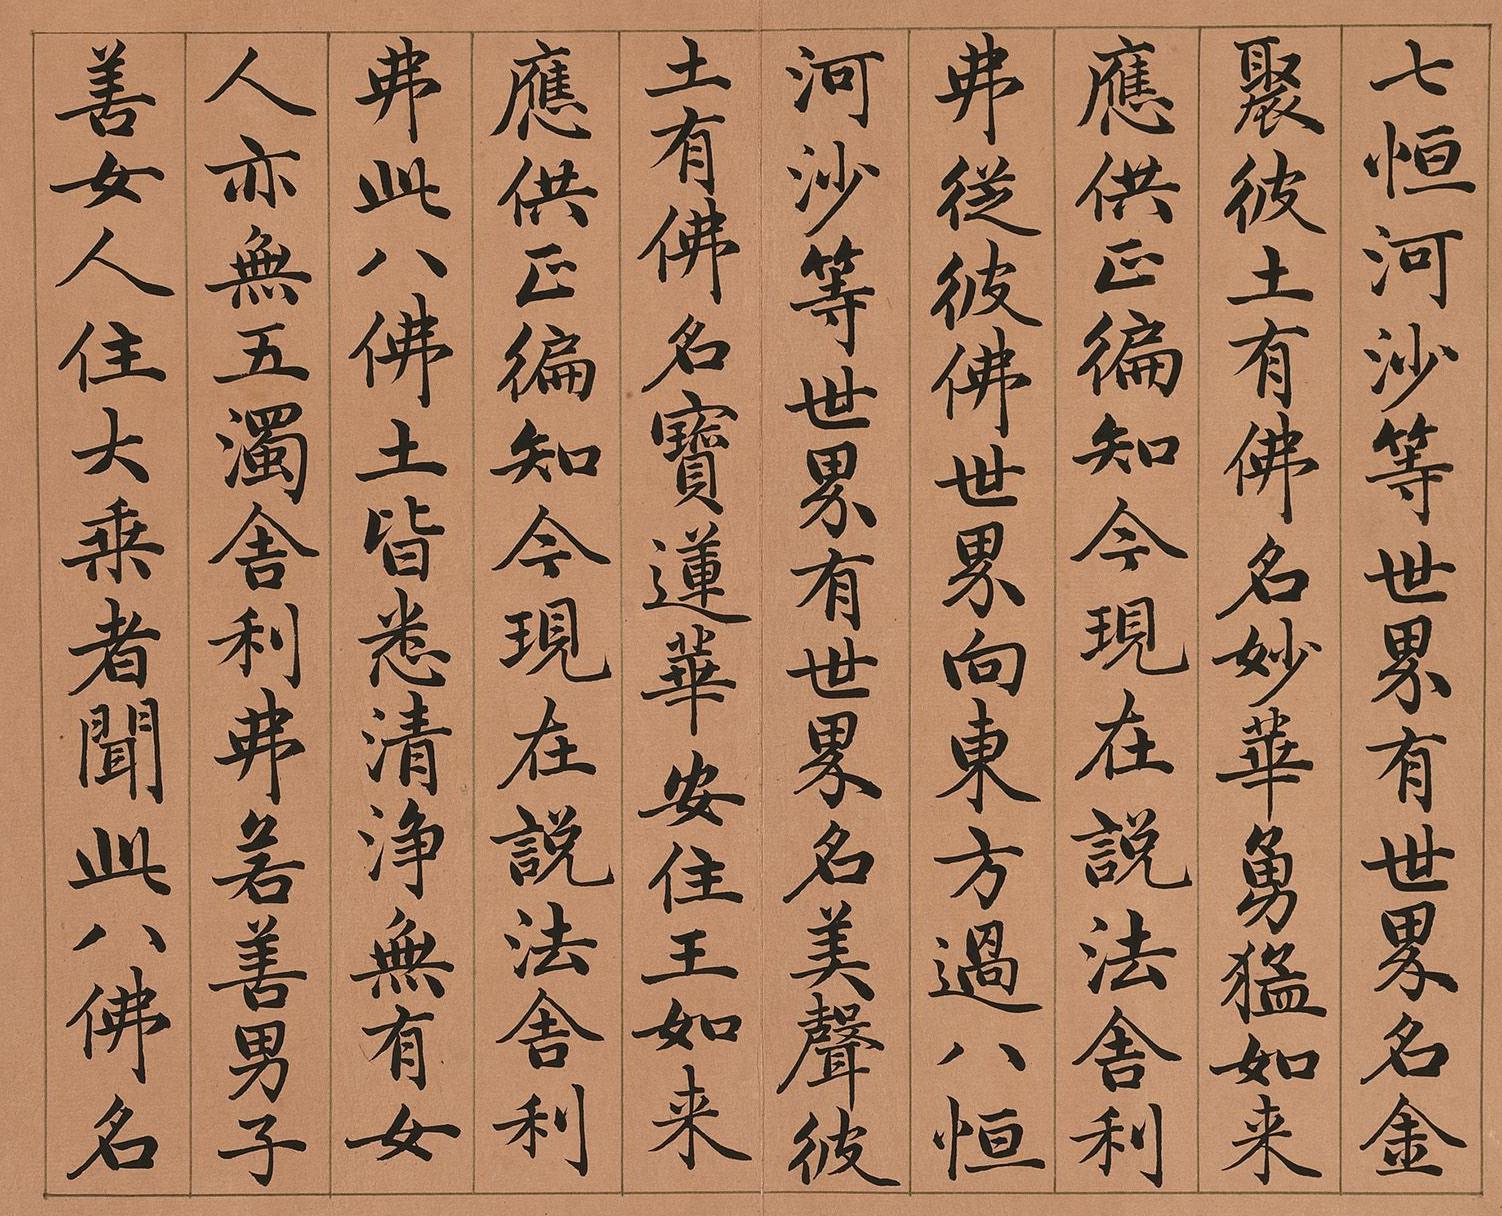 七恒河沙等世界有世界名金
聚彼土有佛名妙華勇猛如来
應供正徧知今現在説法舍利
弗從彼佛世界向東方過八恒
河沙等世界有世界名美聲彼
土有佛名寶蓮華安住王如来
應供正徧知今現在説法舍利
弗此八佛土皆悉清浄無有女
人亦無五濁舍利弗若善男子
善女人住大乗者聞此八佛名